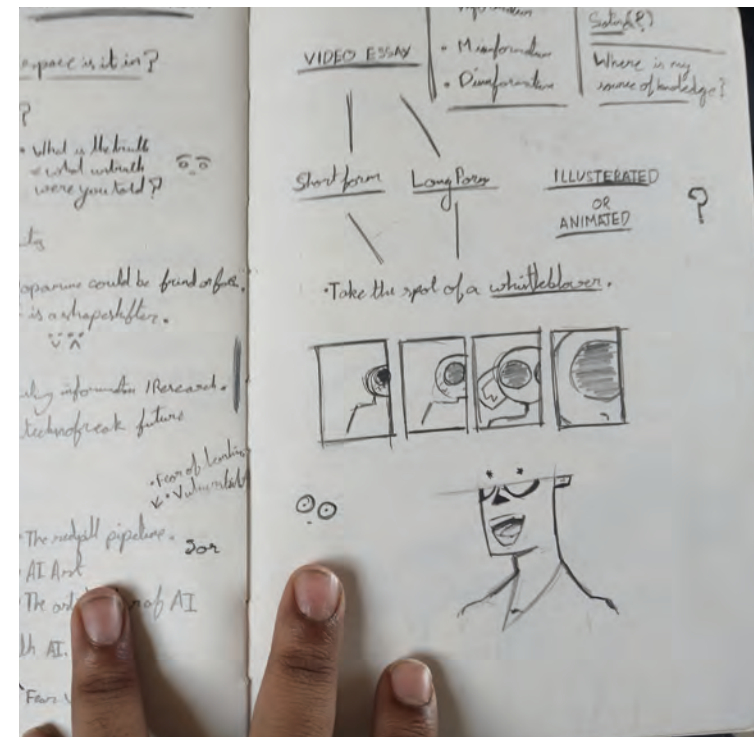 space is it in?
?
• What is the truth
& what untruth
were you told?
opamine could be friend or foe.
is a shapeshifter.
information / Research.
technofreak future
• Fear of
• The redpill pipeline.
• AI Art
• The of AI
th AI.
Fear
VIDEO ESSAY
• Misinformation
• Disinformation
Where is my
source of knowledge?
Short form Long Form
ILLUSTERATED
OR
ANIMATED
?
• Take the spot of a whistleblower.